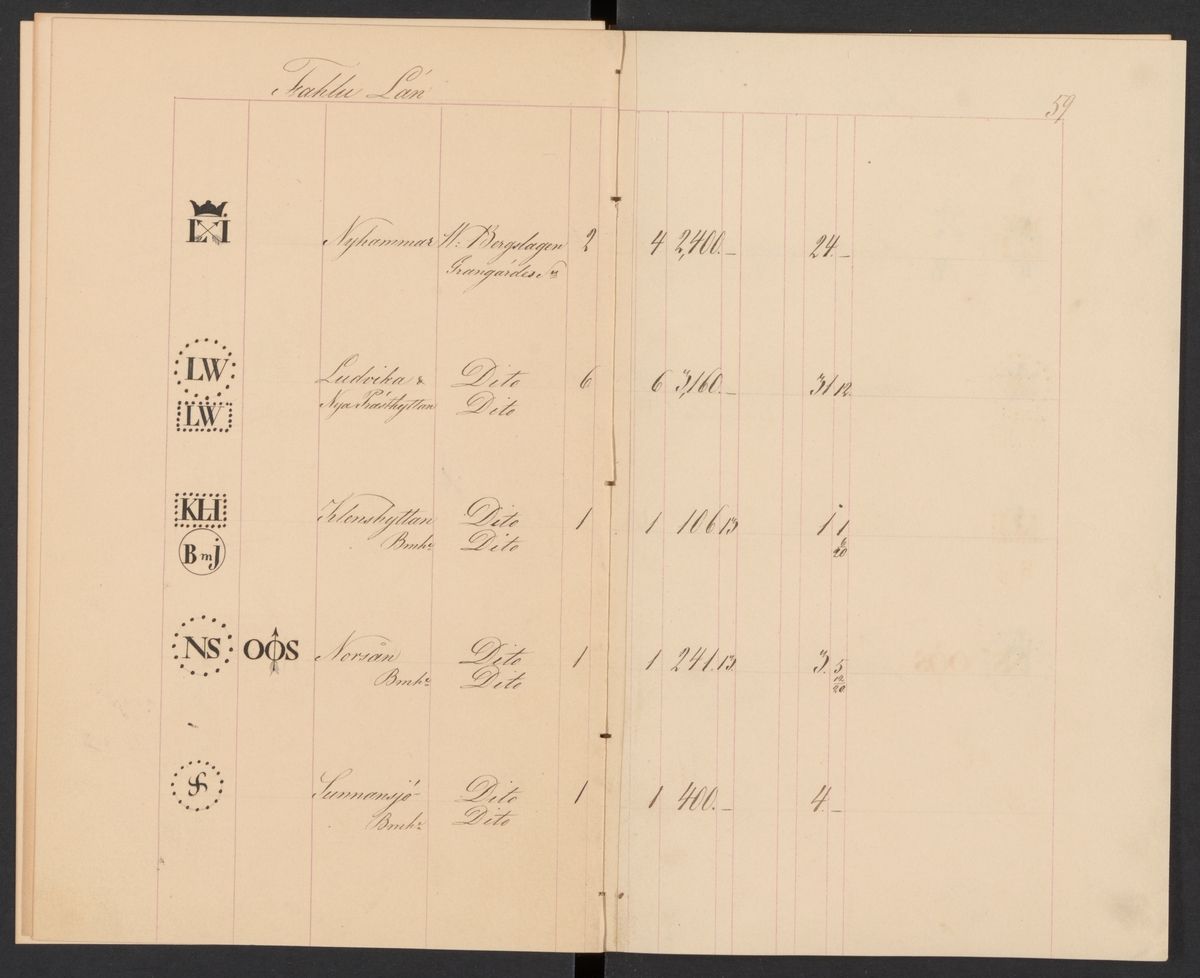 Fahlu Län
59
L I Nyhammar W: Bergslagen 2 4 2,400._ 24._
Grangärdes Sn
LW Ludvika & Dito 6 6 3,160._ 31 12.
LW Nya Prästhyttan Dito
KH Klenshyttan Dito 1 1 106 13 1 1
BmJ Bmkr Dito 6
20
NS OÖS Norsån Dito 1 1 241.13. 3. 5
Bmkr Dito 12
20.
S Sunnansjö Dito 1 1 400._ 4._
Bmkr Dito